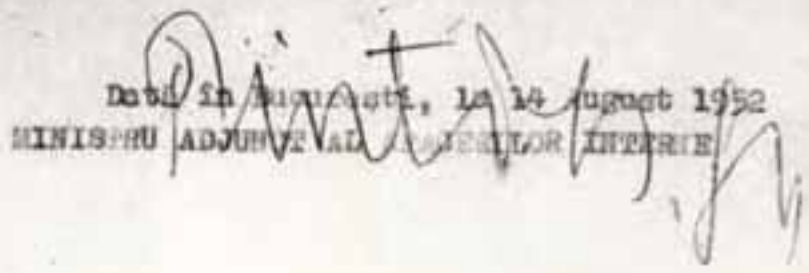 Dată în București, la 14 August 1952
MINISTRU ADJUNCT AL AFACERILOR INTERNE